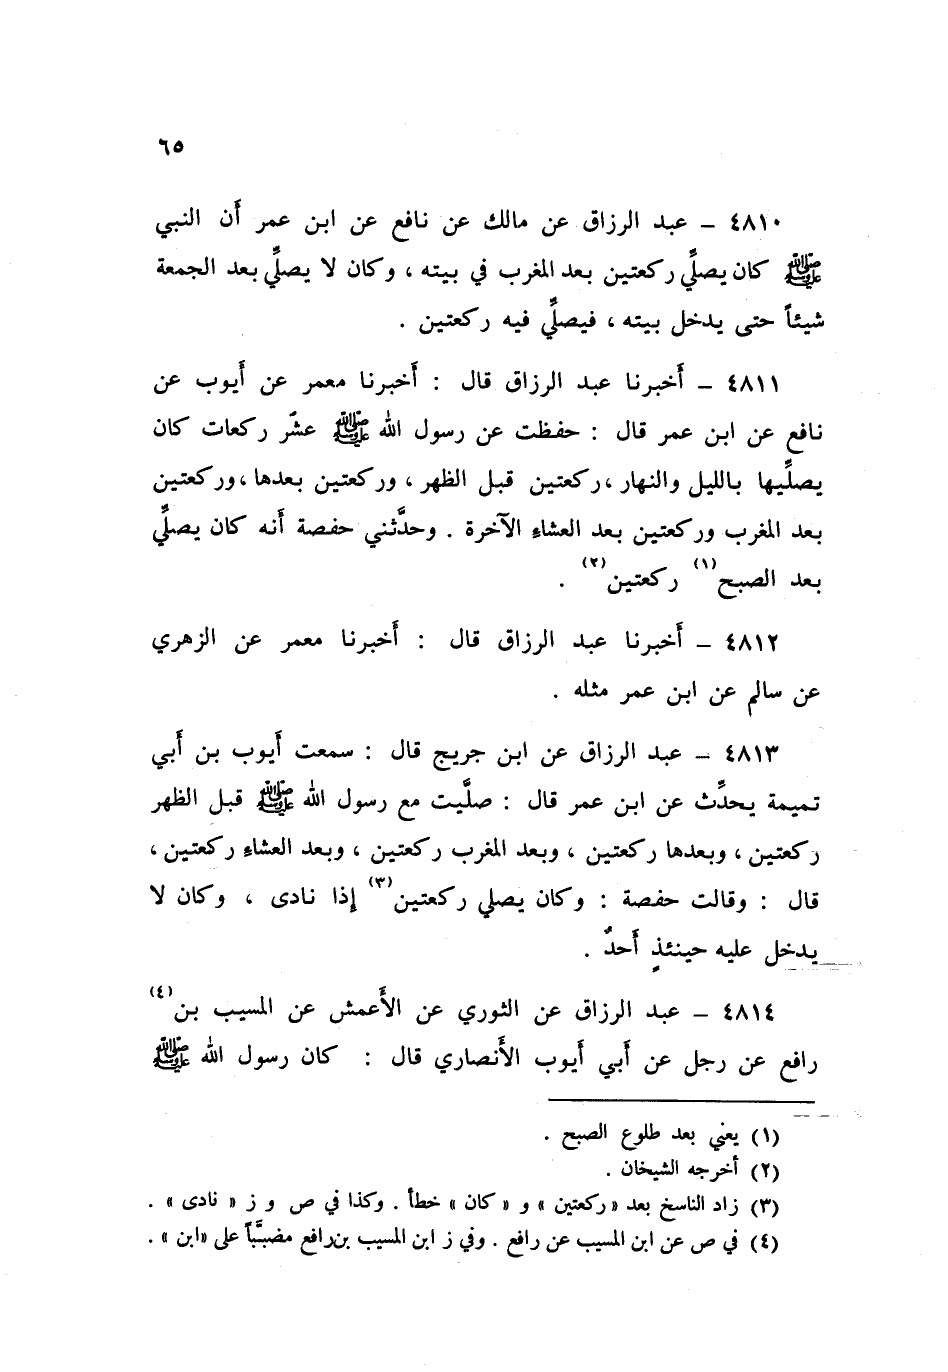 ٦٥
٤٨١٠ ـ عبد الرزاق عن مالك عن نافع عن ابن عمر أن النبي
ﷺ كان يصلِّي ركعتين بعد المغرب في بيته ، وكان لا يصلِّي بعد الجمعة
شيئاً حتى يدخل بيته ، فيصلِّي فيه ركعتين .
٤٨١١ ـ أخبرنا عبد الرزاق قال : أخبرنا معمر عن أيوب عن
نافع عن ابن عمر قال : حفظت عن رسول الله ﷺ عشر ركعات كان
يصلِّيها بالليل والنهار ، ركعتين قبل الظهر ، وركعتين بعدها ، وركعتين
بعد المغرب وركعتين بعد العشاء الآخرة . وحدَّثني حفصة أنه كان يصلِّي
بعد الصبح(١) ركعتين(٢) .
٤٨١٢ ـ أخبرنا عبد الرزاق قال : أخبرنا معمر عن الزهري
عن سالم عن ابن عمر مثله .
٤٨١٣ ـ عبد الرزاق عن ابن جريج قال : سمعت أيوب بن أبي
تميمة يحدِّث عن ابن عمر قال : صلَّيت مع رسول الله ﷺ قبل الظهر
ركعتين ، وبعدها ركعتين ، وبعد المغرب ركعتين ، وبعد العشاء ركعتين ،
قال : وقالت حفصة : وكان يصلي ركعتين(٣) إذا نادى ، وكان لا
يدخل عليه حينئذٍ أحدٌ .
٤٨١٤ ـ عبد الرزاق عن الثوري عن الأعمش عن المسيب بن(٤)
رافع عن رجل عن أبي أيوب الأنصاري قال : كان رسول الله ﷺ
(١) يعني بعد طلوع الصبح .
(٢) أخرجه الشيخان .
(٣) زاد الناسخ بعد « ركعتين » و « كان » خطأ . وكذا في ص و ز « نادى » .
(٤) في ص عن ابن المسيب عن رافع . وفي ز ابن المسيب بن رافع مضبَّباً على « ابن » .